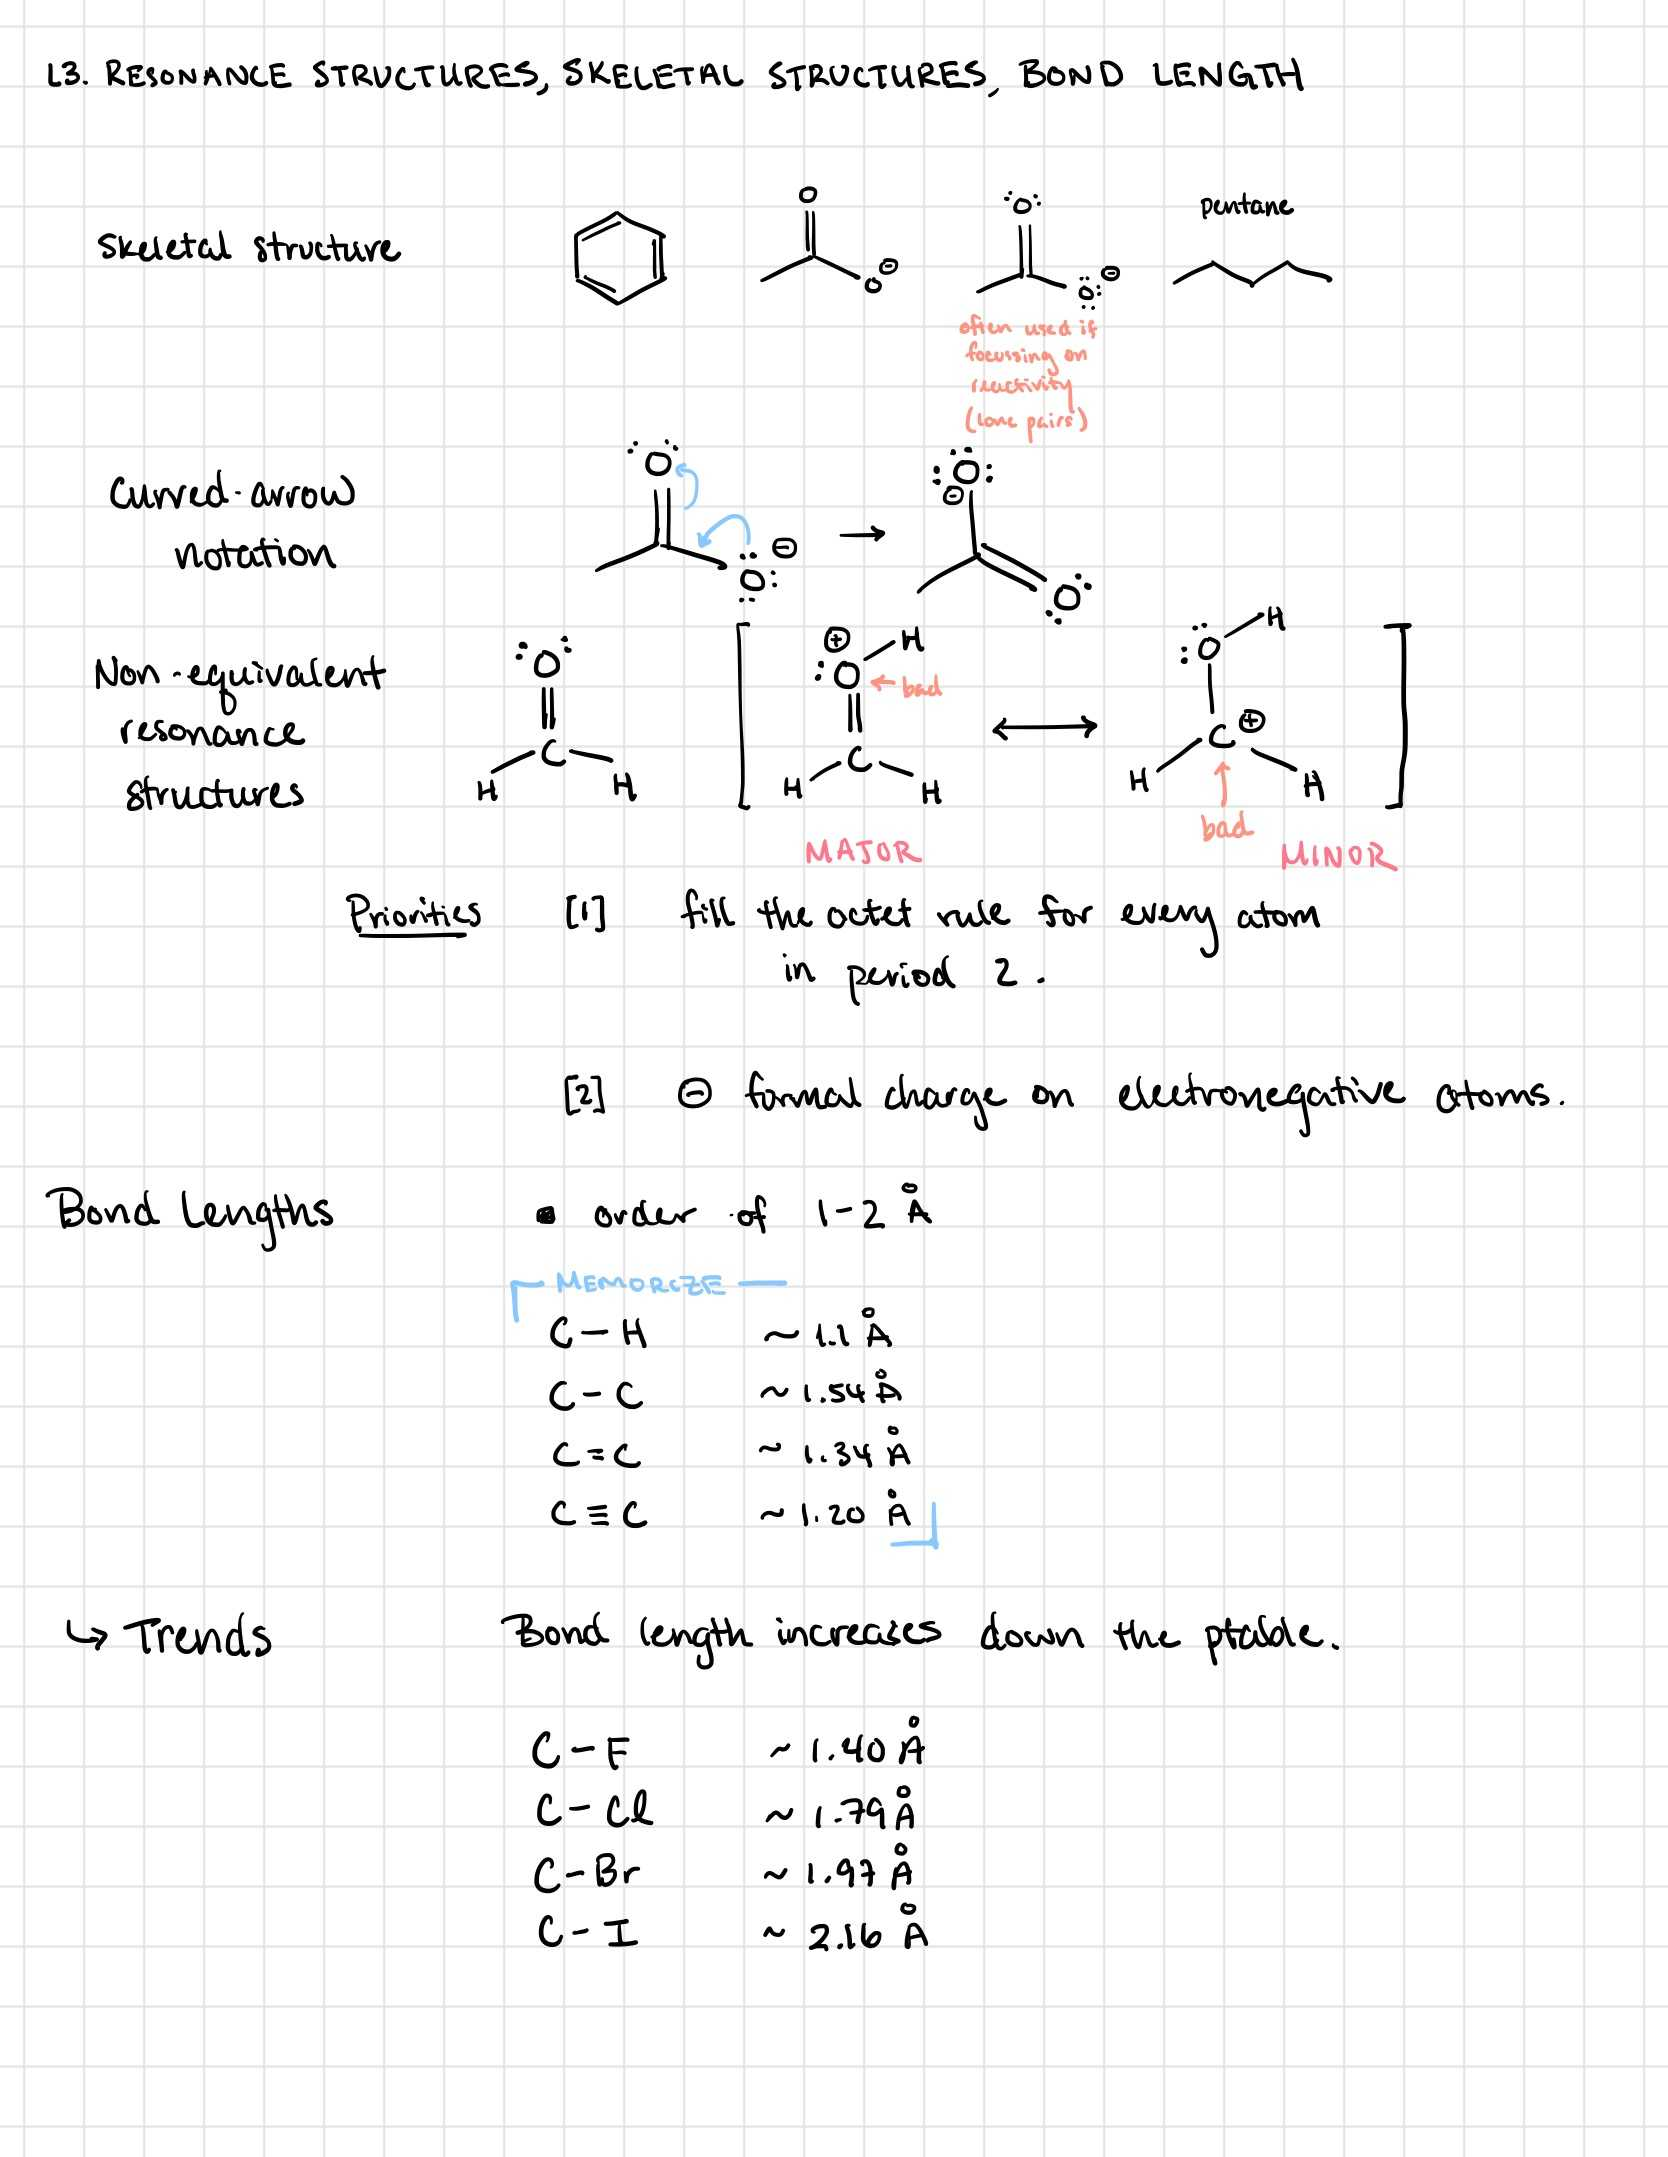 L3. RESONANCE STRUCTURES, SKELETAL STRUCTURES, BOND LENGTH
pentane
Skeletal structure
O
O⊖
:O:
:O:⊖
often used if
focussing on
reactivity
(lone pairs)
Curved-arrow
notation
:O:
:O:⊖
→
:O:
⊖
:O:
Non-equivalent
resonance
structures
:O:
C
H H
[ ⊕ H
:O ← bad
C
H H
↔
:O H
C ⊕
H H ]
bad
MAJOR
MINOR
Priorities [1] fill the octet rule for every atom
in period 2.
[2] ⊖ formal charge on electronegative atoms.
Bond Lengths • order of 1-2 Å
MEMORIZE
C-H ~ 1.1 Å
C-C ~ 1.54 Å
C=C ~ 1.34 Å
C≡C ~ 1.20 Å
↳ Trends Bond length increases down the ptable.
C-F ~ 1.40 Å
C-Cl ~ 1.79 Å
C-Br ~ 1.97 Å
C-I ~ 2.16 Å